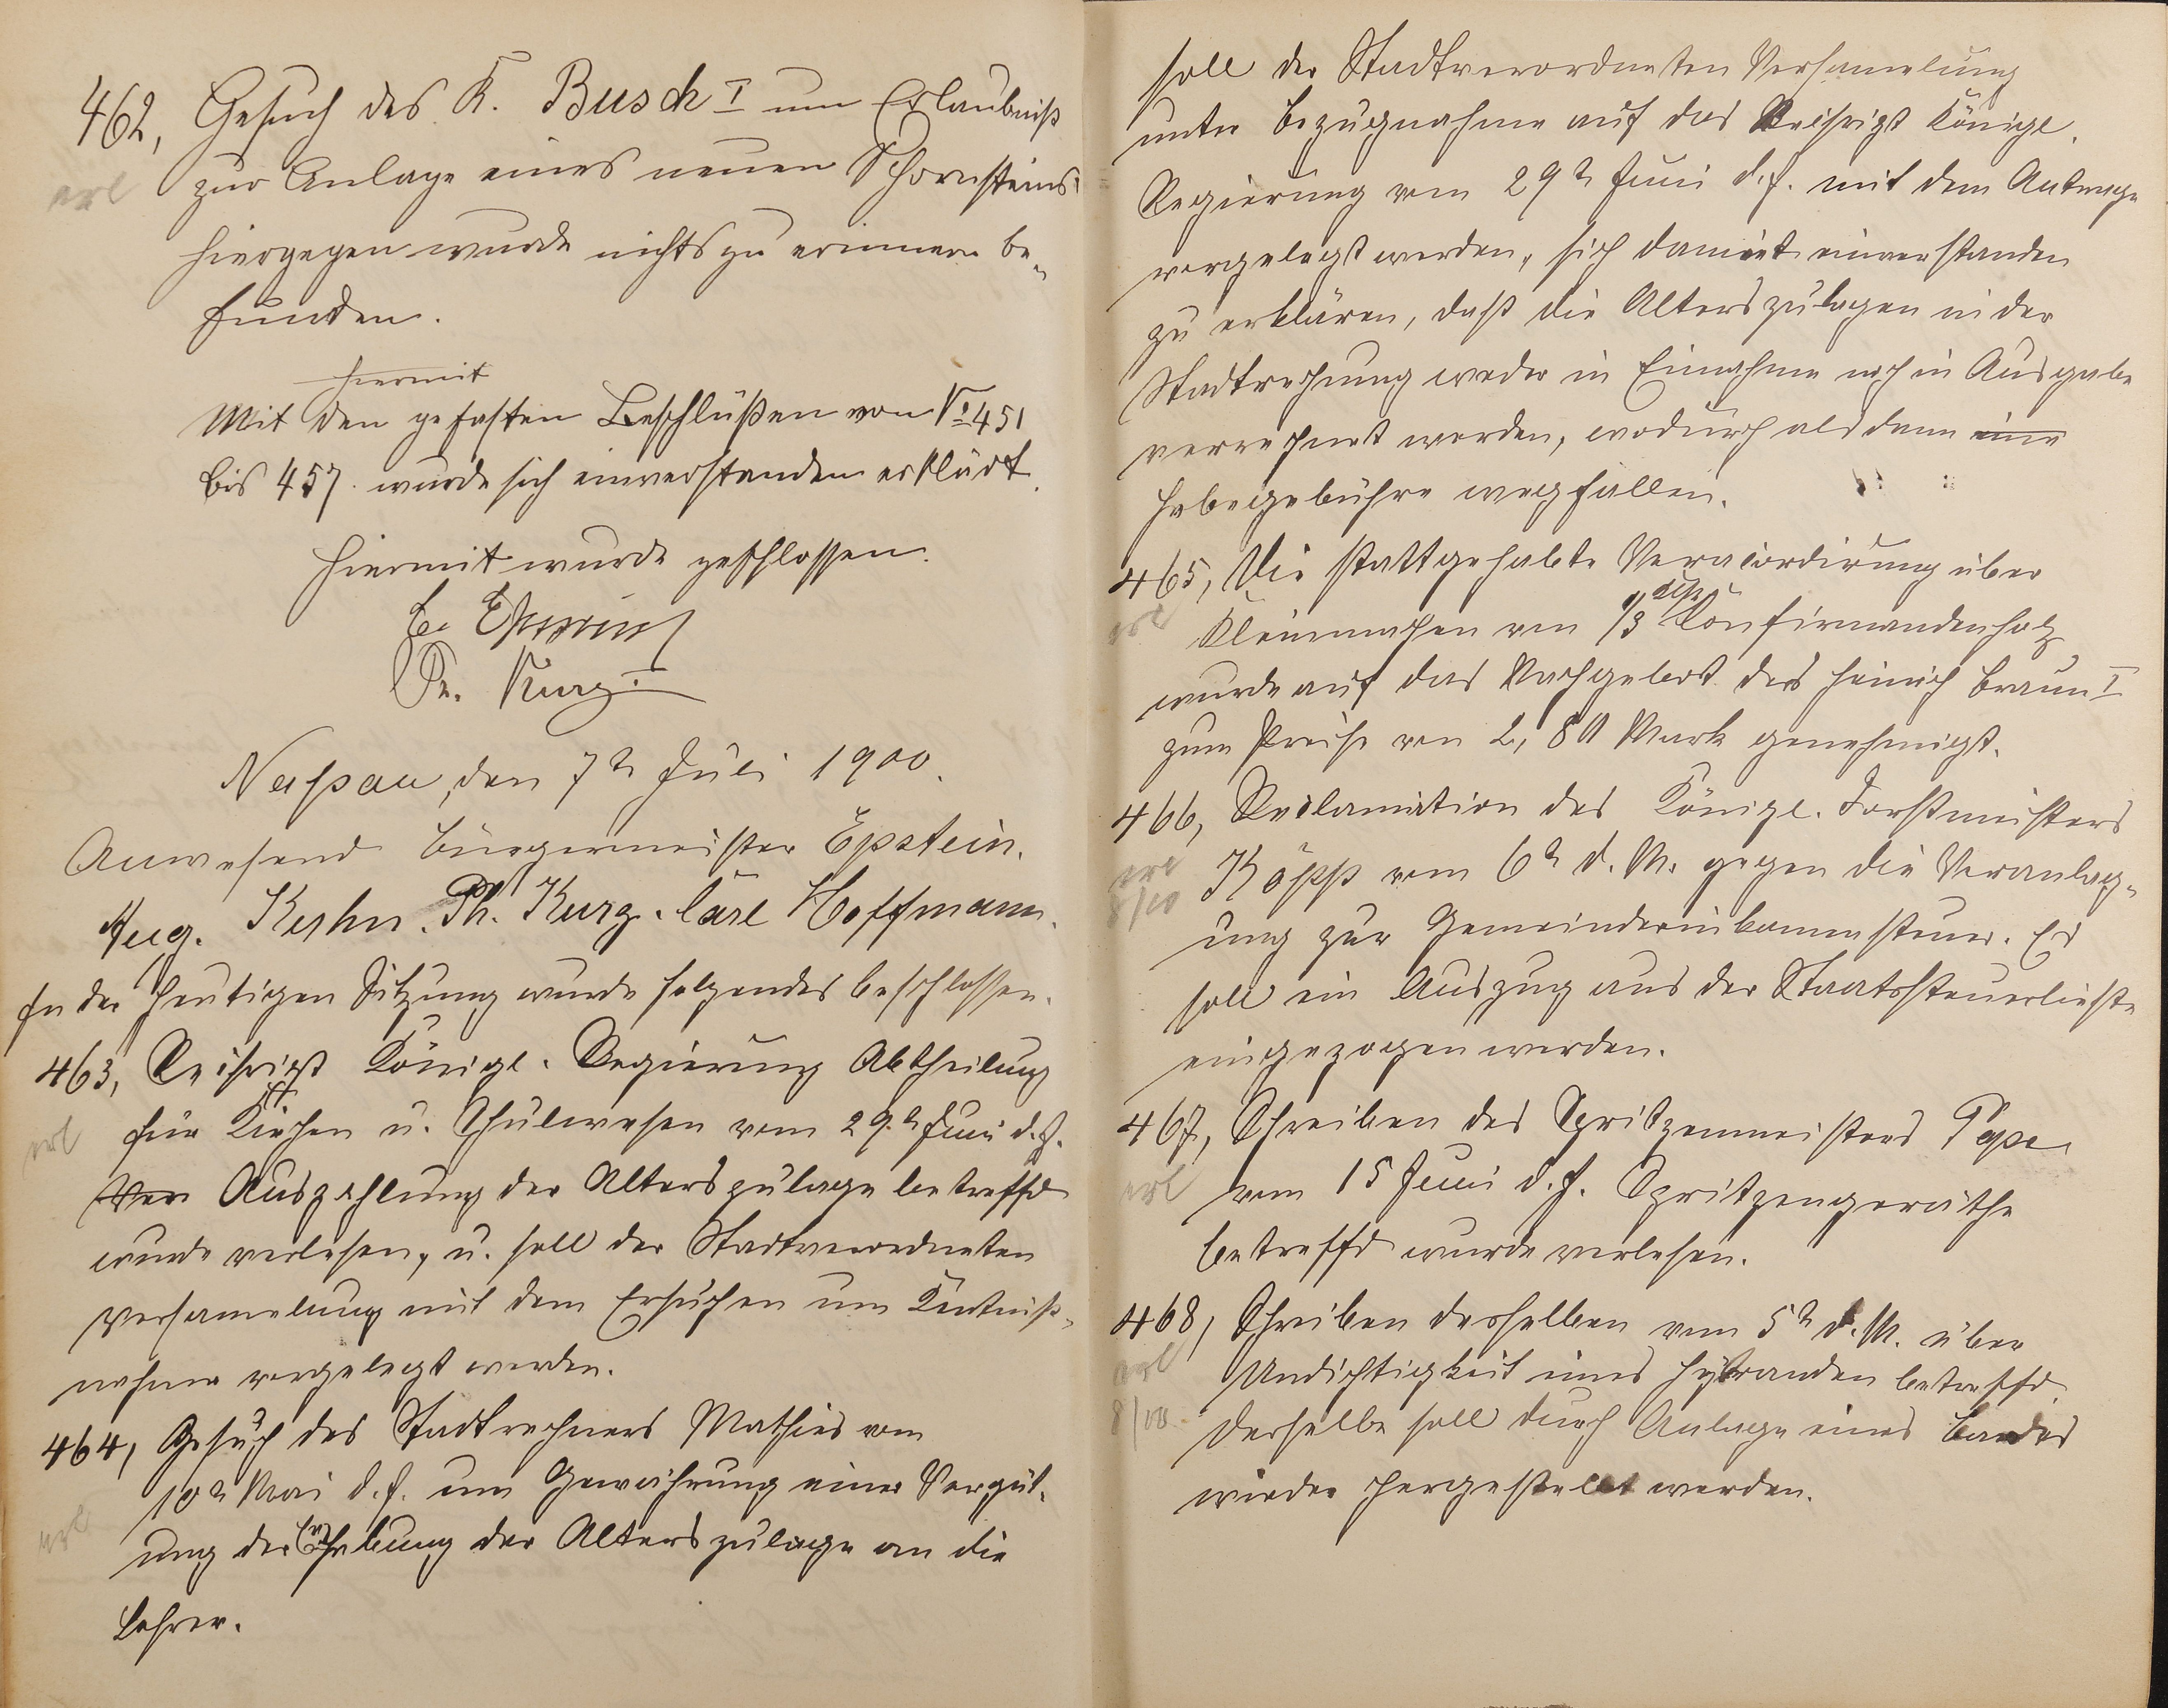 462, Gesuch des K. Busch I um Erlaubniß
erl zur Anlage eines neuen Schornsteins.
hiergegen wurde nichts zu erinnern be-
funden.
hiermit
Mit den gefaßten Beschlüßen von No 451
bis 457. wurde sich einverstanden erklärt.
Hiermit wurde geschlossen.
Ph. Kurz.
Naßau, den 7ten Juli 1900.
Anwesend Bürgermeister Epstein.
Aug. Kuhn. Ph. Kurz. Carl Hoffmann.
In der heutigen Sitzung wurde folgendes beschlossen.
463, Königl. Regierung Abtheilung
erl für Kirchen u. Schulwesen vom 29.ten Juni d. J.
Auszahlung der Alterszulage betreffd
wurde verlesen, u. soll der Stadtverordneten
Versamelung mit dem Ersuchen um Kentniß-
nahme vorgelegt werden.
464, Gesuch des Stadtrechners Mathies vom
10ten Mai d. J. um Gewährung einer Vergüt-
erl ung der Erhebung der Alterszulage an die
Lehrer.
soll der Stadtverordneten Versamelung
unter Bezugnahme auf das Königl.
Regierung vom 29ten Juni d. J. mit dem Antrage
vorgelegt werden, sich damit einverstanden
zu erklären, daß die Alterszulagen in der
Stadtrechnung weder in Einnahme noch in Ausgabe
verrechnet werden, wodurch alsdann eine
Hebegebühre wegfallen.
465, Die stattgehabte Veracordirung über
erl Kleinmachen von 1/3 Confirmandenholz
wurde auf das Nachgebot des Heinrich Braun I
zum Preise von 2,80 Mark genehmigt.
466, Reclamation des Königl. Forstmeisters
erl Köpp vom 6ten d. M. gegen die Veranlag-
8/00 ung zur Gemeindeeinkommensteuer. Es
soll ein Auszug aus der Staatssteuerlieste
eingezogen werden.
467, Schreiben des Spritzenmeisters Pape
erl vom 15 Juni d. J. Spritzengeräthe
betreffd wurde verlesen.
468, Schreiben desselben vom 5ten d. M. über
erl Undichtigkeit eines Hydranden betreffd.
8/00. Derselbe soll durch Anlage eines Bandes
wieder hergestellt werden.